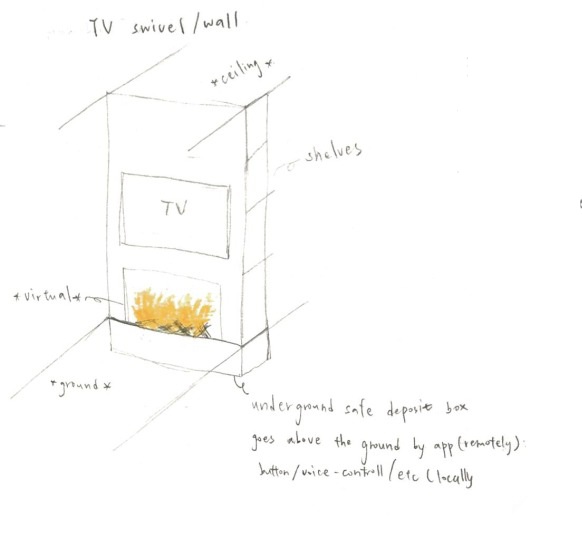 TV swivel/wall
*ceiling*
shelves
TV
*virtual*
*ground*
underground safe deposit box
goes above the ground by app (remotely):
button/voice-controll/etc (locally